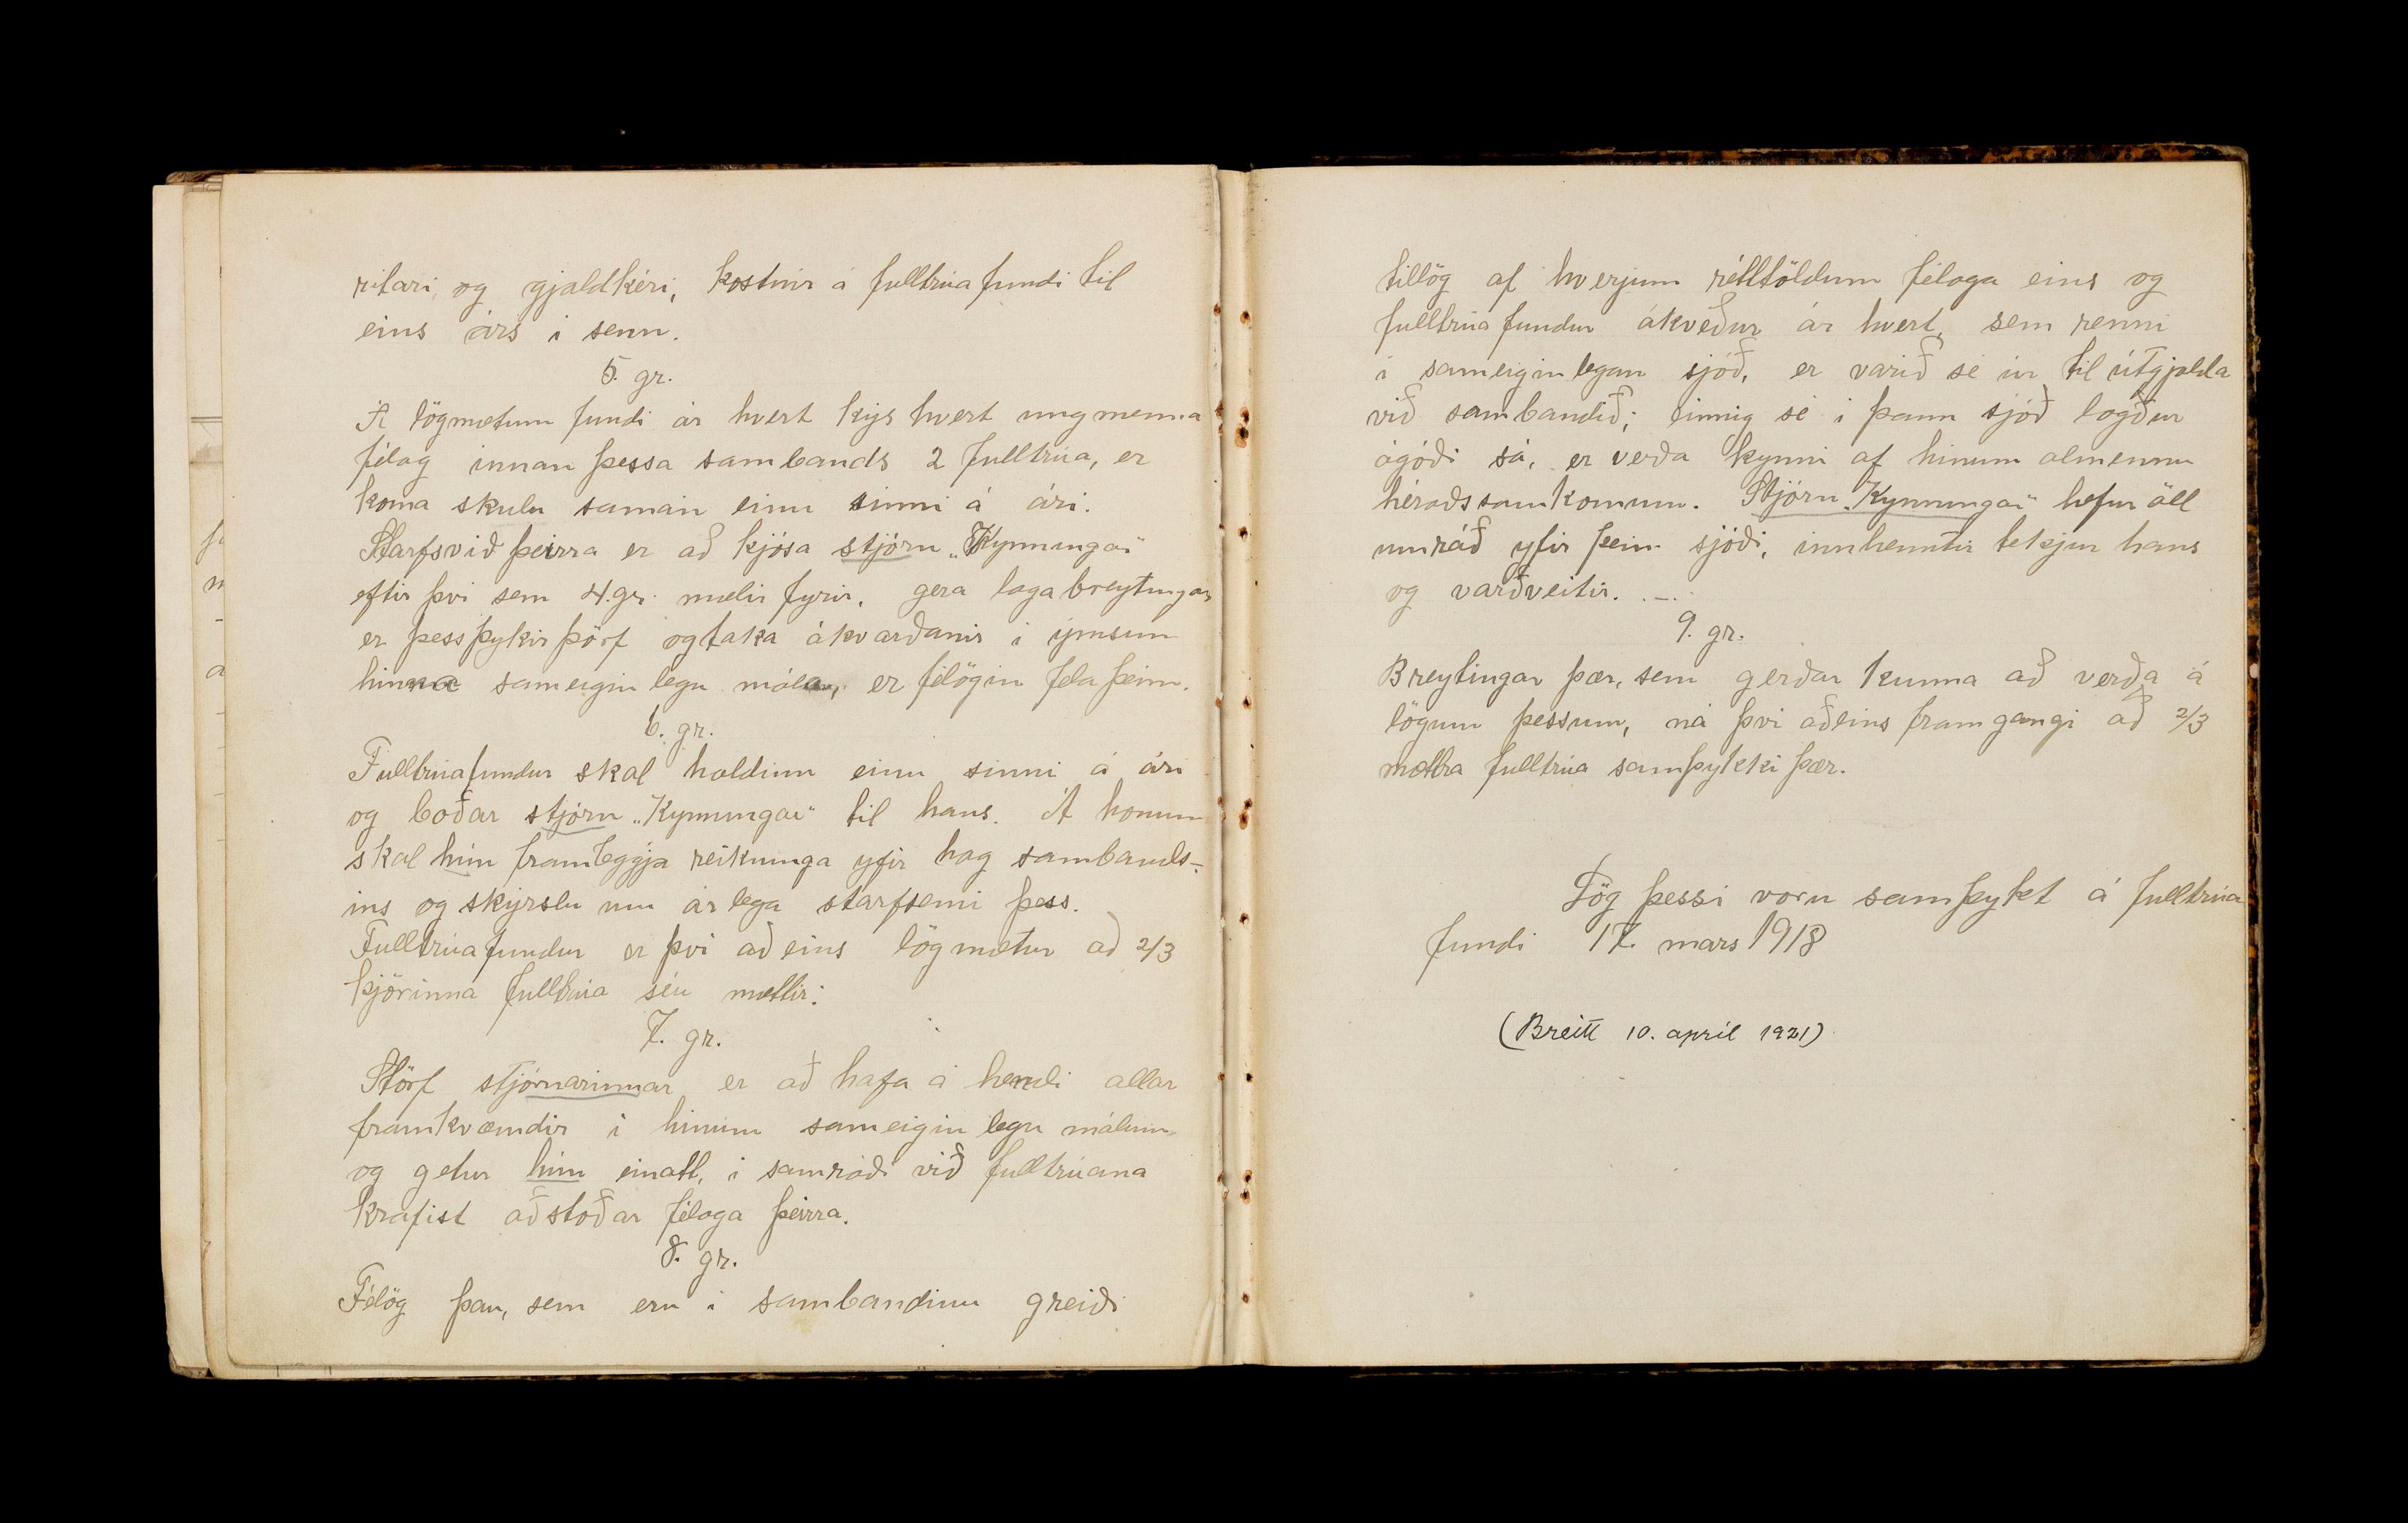 ritari og gjaldkeri, kostnir á fulltrúafundi til
eins árs í senn.
5. gr.
Á lögmætum fundi ár hvert kýs hvert ungmenna
félag innan þessa sambands 2 fulltrúa, er
koma skulu saman einu sinni á ári.
Starfsvið þeirra er að kjósa stjórn „Kynningar“
eftir því sem 4. gr. mælir fyrir, gera lagabreytingar
er þess þykir þörf og taka ákvarðanir í ýmsum
hinna sameiginlegu mála, er félögin fela þeim.
6. gr.
Fulltrúafundur skal haldinn einu sinni á ári
og boðar stjórn „Kynningar“ til hans. Á honum
skal hún framleggja reikninga yfir hag sambands-
ins og skýrslu um árlega starfsemi þess.
Fulltrúafundur er því aðeins lögmætur að 2/3
kjörinna fulltrúa séu mættir.
7. gr.
Störf stjórnarinnar er að hafa á hendi allar
framkvæmdir í hinum sameiginlegu málum
og getur hún einatt, í samráði við fulltrúana
krafist aðstoðar félaga þeirra.
8. gr.
Félög þau, sem eru í sambandinu greiði
tillög af hverjum réttöldum félaga eins og
fulltrúafundur ákveður ár hvert, sem renni
í sameiginlegan sjóð, er varið sé úr til útgjalda
við sambandið; einnig sé í þann sjóð lagður
ágóði sá, er verða kynni af hinum almennu
héraðssamkomum. Stjórn „Kynningar“ hefur öll
umráð yfir þeim sjóði, innheimtir tekjur hans
og varðveitir. . – .
9. gr.
Breytingar þær, sem gerðar kunna að verða á
lögum þessum, ná því aðeins framgangi að 2/3
mættra fulltrúa samþykki þær.
Lög þessi voru samþykt á fulltrúa
fundi 17. mars 1918
(Breitt 10. apríl 1921)